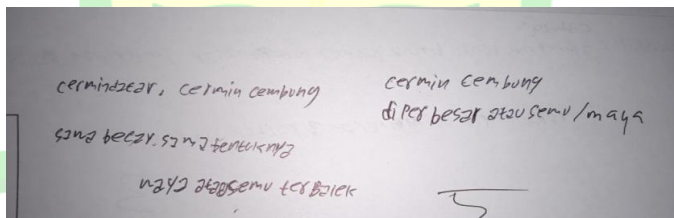 cermin datar, cermin cembung
sama besar. sama bentuknya
maya atau semu terbalek
cermin cembung
diperbesar atau semu/maya